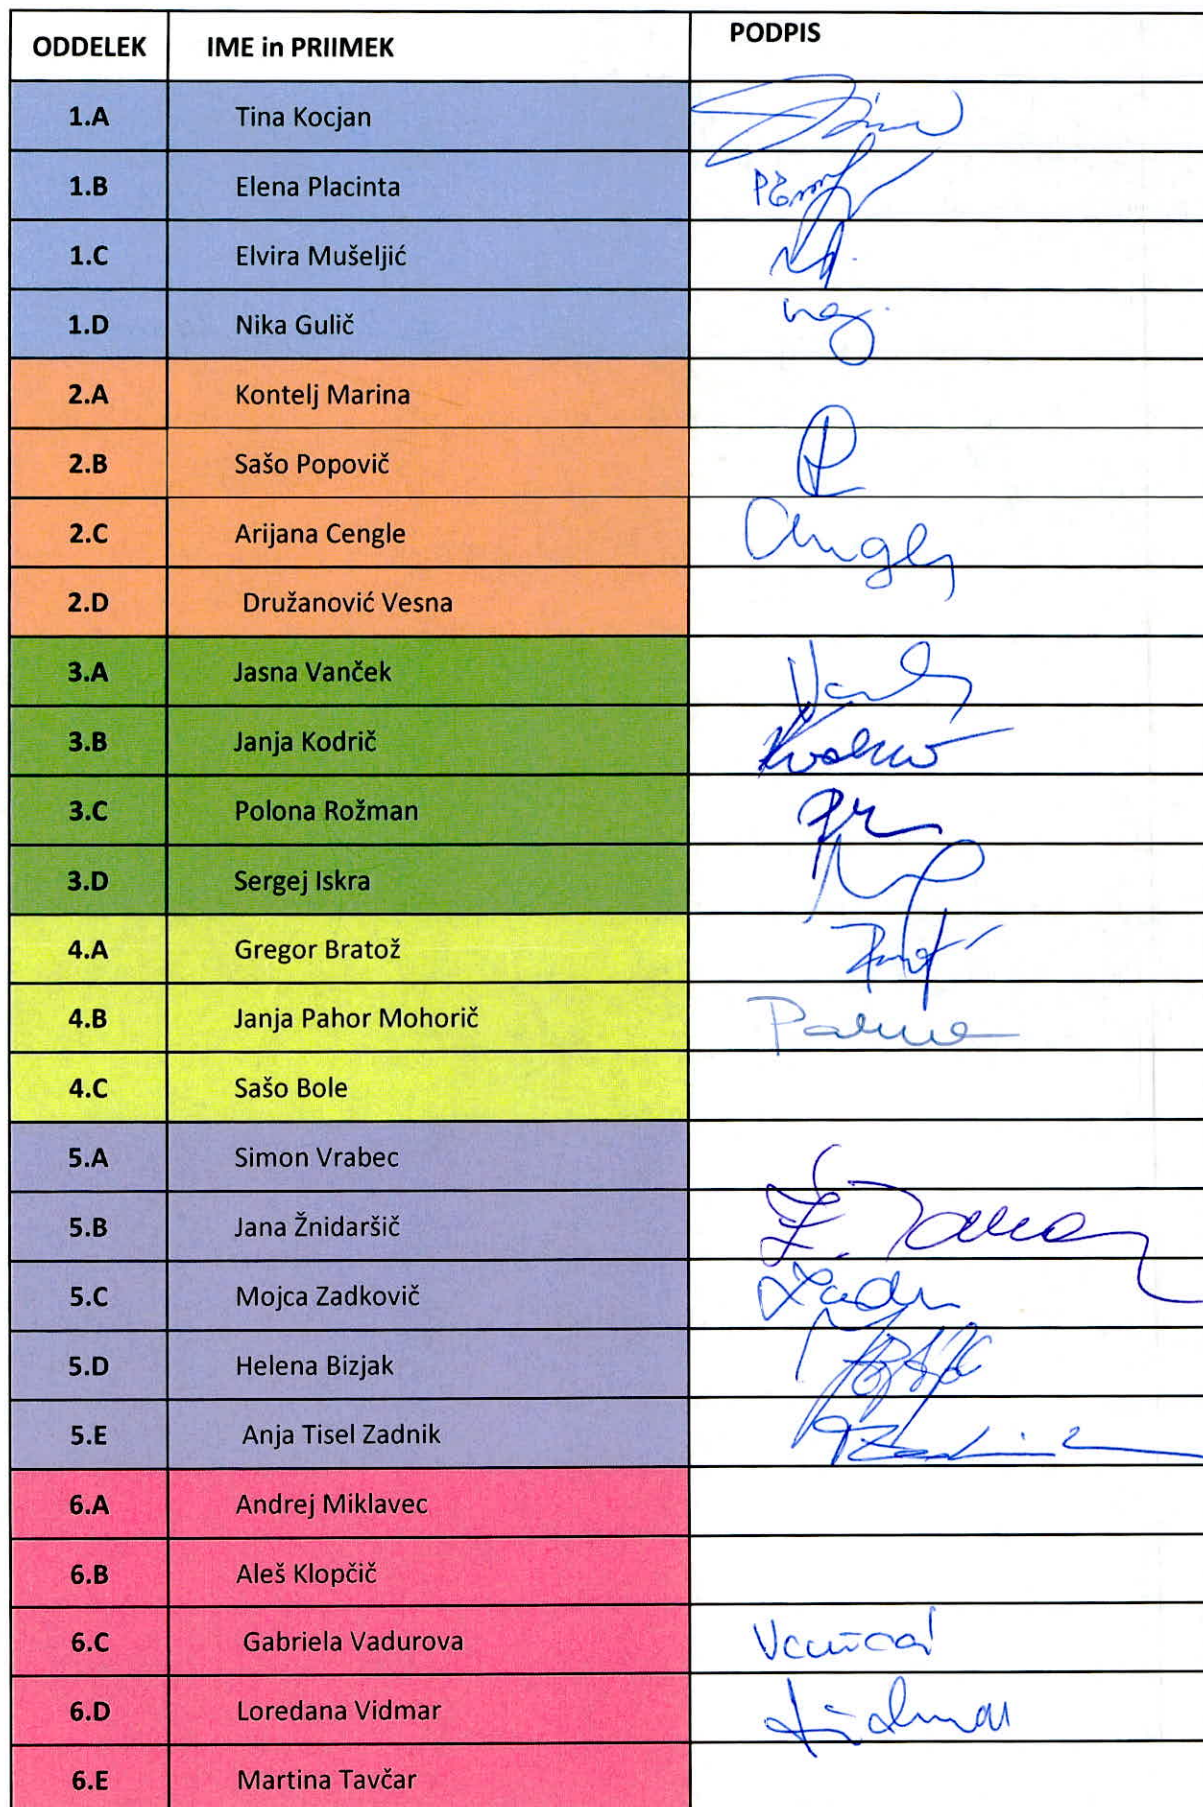 ODDELEK IME in PRIIMEK PODPIS
1.A Tina Kocjan
1.B Elena Placinta
1.C Elvira Mušeljić
1.D Nika Gulič
2.A Kontelj Marina
2.B Sašo Popovič
2.C Arijana Cengle
2.D Družanović Vesna
3.A Jasna Vanček
3.B Janja Kodrič
3.C Polona Rožman
3.D Sergej Iskra
4.A Gregor Bratož
4.B Janja Pahor Mohorič
4.C Sašo Bole
5.A Simon Vrabec
5.B Jana Žnidaršič
5.C Mojca Zadkovič
5.D Helena Bizjak
5.E Anja Tisel Zadnik
6.A Andrej Miklavec
6.B Aleš Klopčič
6.C Gabriela Vadurova
6.D Loredana Vidmar
6.E Martina Tavčar